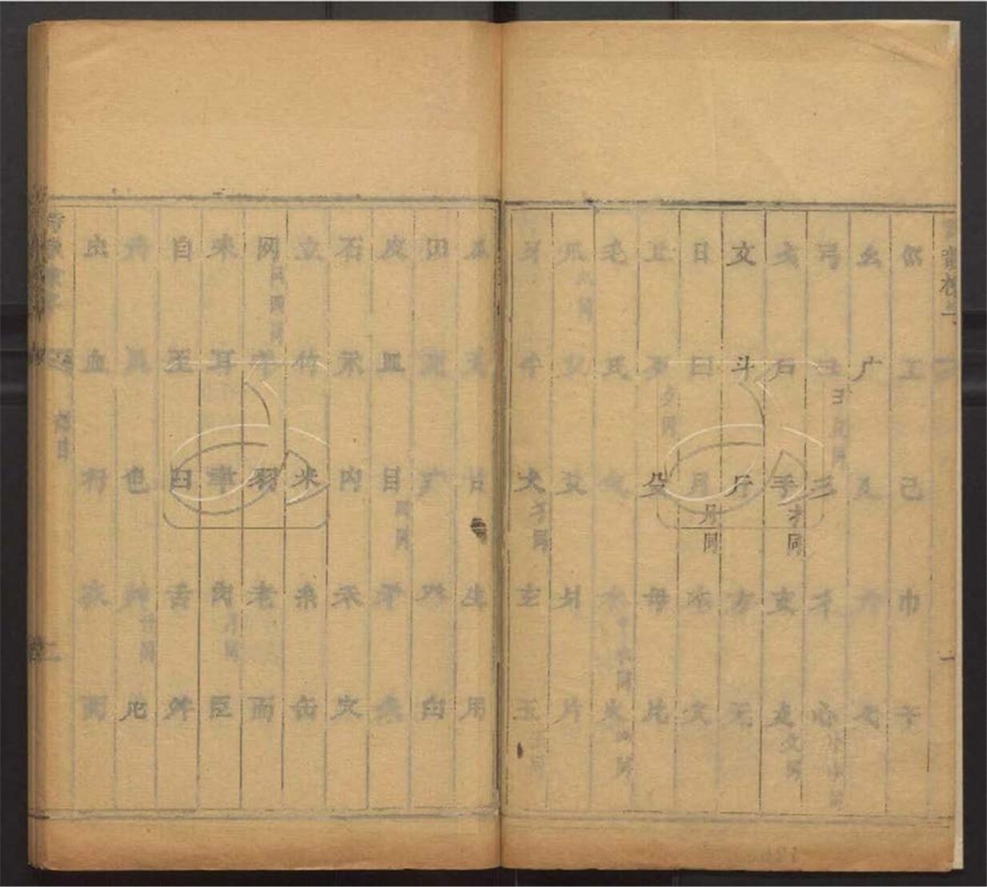 巛工己巾干
幺广廴廾弋
弓彐彡彳心
戈戶手才同支攴攵同
文斗斤方无
日曰月月同木欠
止歹歺同殳毋比
毛氏气水火灬同
爪父爻爿片
牙牛犬犭同玄玉王同
瓜瓦甘生用
田疋疒癶白
皮皿目矛矢
石示禸禾穴
立竹米糸缶
网羊羽老而
耒耳聿肉月同臣
自至臼舌舛
舟艮色艸艹同虍
虫血行衣襾